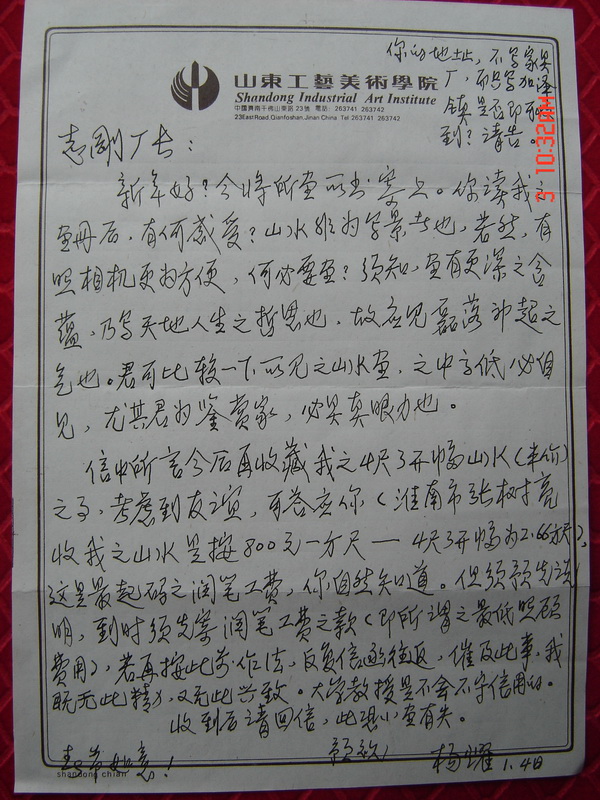 你的地址，不写家具
厂，而只写加泽
镇是否即可收
到？请告。
山東工藝美術學院
Shandong Industrial Art Institute
中國濟南千佛山東路23號 電話 263741 263742
23East Road, Qianfoshan, Jinan China Tel 263741 263742
10:32
志剛厂长：
新年好？今将所画所书寄上。你读我之
画册后，有何感受？山水能为写景者也，若然，有
照相机更为方便，何必要画？须知，画有更深之含
蕴，乃写天地人生之哲思也，故应见磊落冲超之
气也。君可比较一下所见之山水画，之中高低必自
见，尤其君为鉴赏家，必具真眼力也。
信中所言今后再收藏我之4尺3开幅山水(来价)
之事，考虑到友谊，可答应你（淮南市张树亮
收我之山水是按800元一方尺—4尺3开幅为2.66方尺），
这是最起码之润笔工费，你自然知道。但须预先说
明，到时须先寄润笔工费之款（即所谓之最低照顾
费用），若再按此前作法，反复信函往返，催及此事，我
既无此精力，又无此兴致。大学教授是不会不守信用的。
收到后请回信，此恐小画有失。
顺颂
吉常如意！
杨耀 1.4日
shandong chian